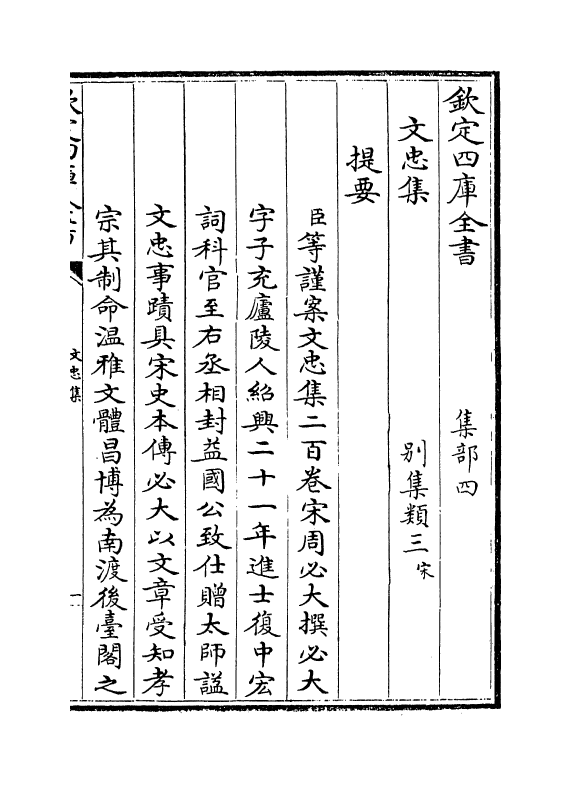 欽定四庫全書　集部四
文忠集　別集類三宋
提要
臣等謹案文忠集二百卷宋周必大撰必大
字子充廬陵人紹興二十一年進士復中宏
詞科官至右丞相封益國公致仕贈太師謚
文忠事蹟具宋史本傳必大以文章受知孝
宗其制命温雅文體昌博為南渡後臺閣之
文忠集
一